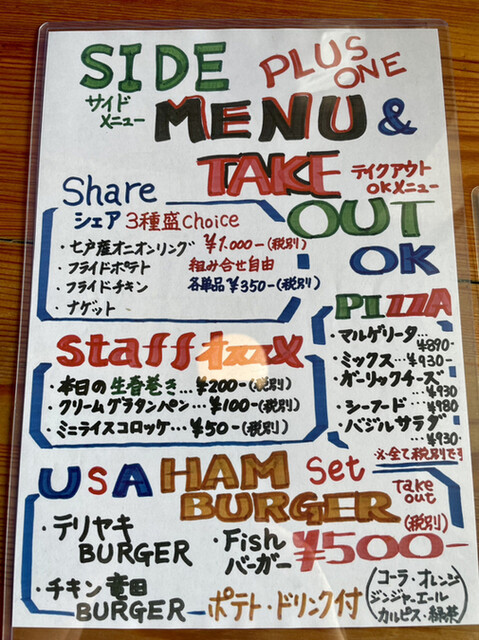 SIDE PLUS ONE
サイドメニュー MENU &
TAKE OUT OK
テイクアウト
OKメニュー
Share
シェア 3種盛Choice
・七戸産オニオンリング ¥1.000-(税別)
・フライドポテト 組み合せ自由
・フライドチキン 各単品¥350-(税別)
・ナゲット
PIZZA
・マルゲリータ… ¥890-
・ミックス…¥930-
・ガーリックチーズ… ¥930
・シーフード…¥980
・バジルサラダ… ¥930-
※全て税別です
Staffオススメ
・本日の生春巻き…¥200-(税別)
・クリームグラタンパン…¥100-(税別)
・ミニライスコロッケ…¥50-(税別)
USA HAM BURGER Set
take out
(税別)
・テリヤキ BURGER
・Fish バーガー
¥500-
・チキン竜田 BURGER
ポテト・ドリンク付
(コーラ・オレンジ
ジンジャーエール
カルピス・緑茶)